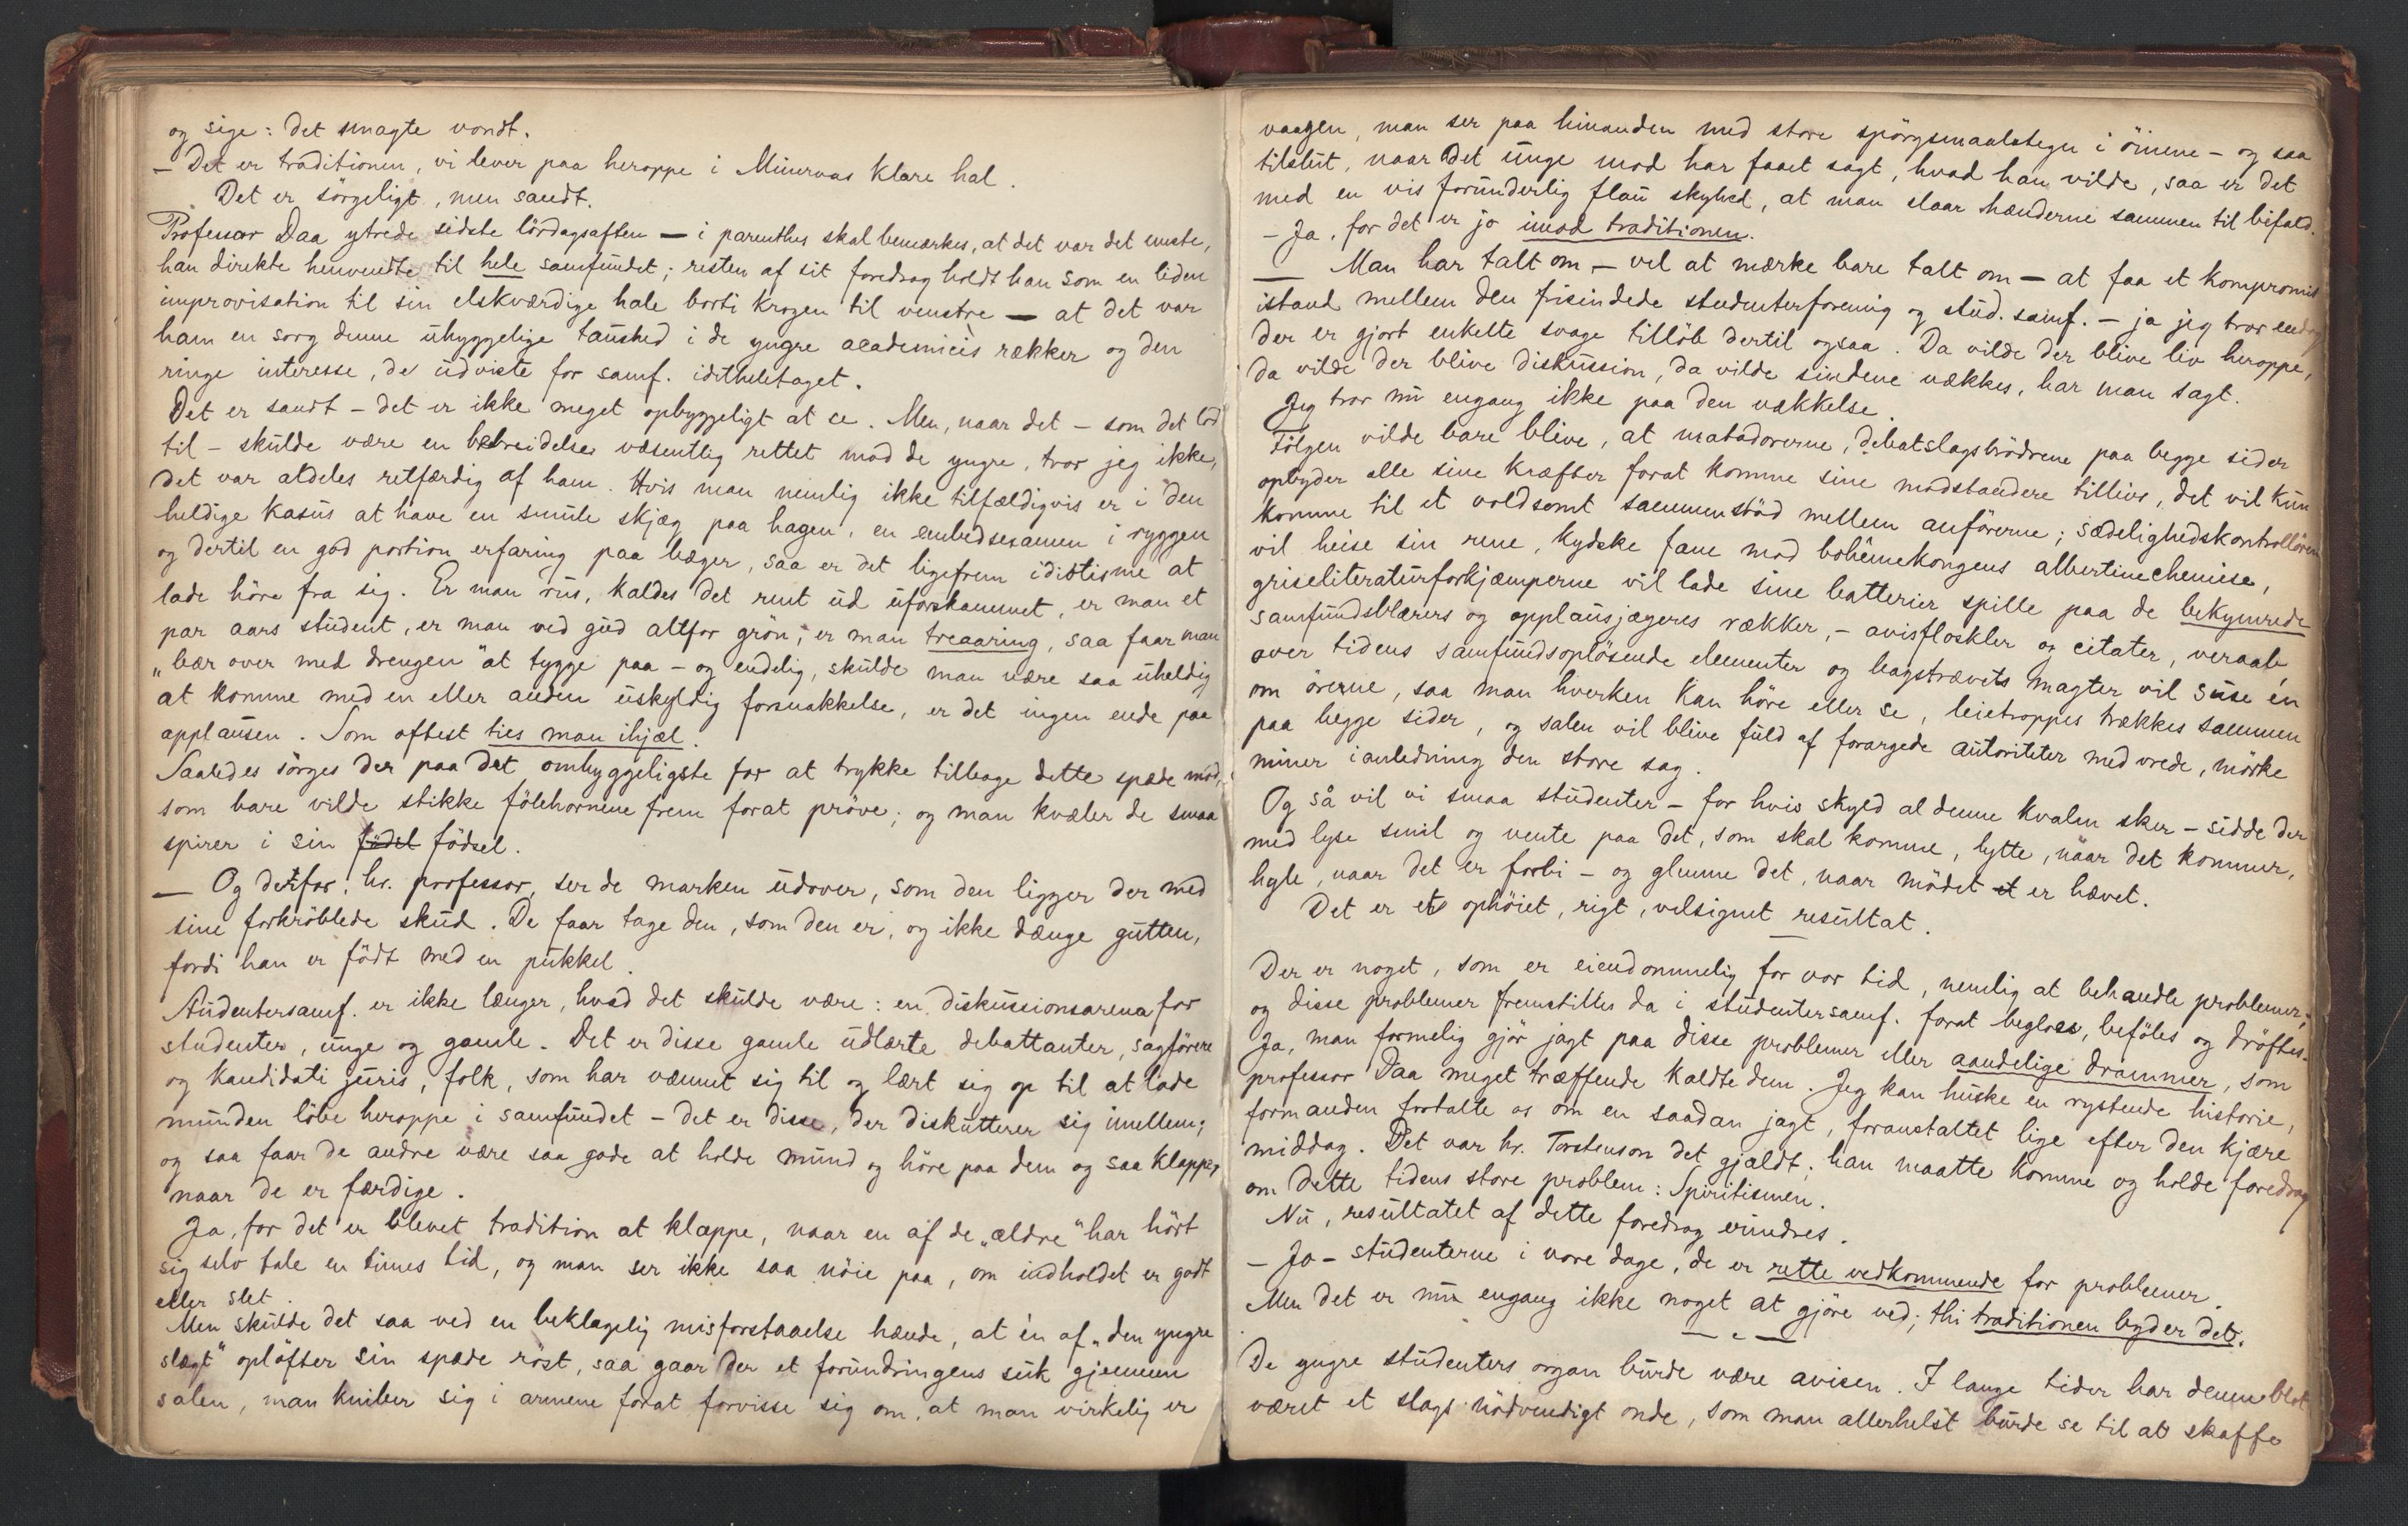 og sige: det smagte vondt.
— Det er traditionen, vi lever paa heroppe i Minervas klare hal.
Det er sörgeligt, men sandt.
Professor Daa ytrede sidste lördagsaften — i parenthes skal bemærkes, at det var det eneste,
han direkte henvendte til hele samfundet; resten af sit foredrag holdt han som en liden
improvisation til sin elskværdige hale borti krogen til venstre — at det var
ham en sorg denne uhyggelige taushed i de yngre academicis rækker og den
ringe interesse, de udviste for samf. idetheletaget.
Det er sandt – det er ikke meget opbyggeligt at se. Men, naar det – som det lod
til – skulde være en bebreidelse væsentlig rettet mod de yngre, tror jeg ikke,
det var aldeles retfærdig af ham. Hvis man nemlig ikke tilfældigvis er i den
heldige kasus at have en smule skjæg paa hagen, en embedsexamen i ryggen
og dertil en god portion erfaring paa bæger, saa er det ligefrem idiotisme at
lade höre fra sig. Er man rus, kaldes det rent ud uforskammet, er man et
par aars student, er man ved gud altfor grön; er man treaaring, saa faar man
„bær over med drengen" at tygge paa – og endelig, skulde man være saa uheldig
at komme med en eller anden uskyldig forsnakkelse, er det ingen ende paa
applausen. Som oftest ties man ihjel.
Saaledes sörges der paa det omhyggeligste for at trykke tilbage dette spæde mod,
som bare vilde stikke fölehornene frem forat pröve; og man kvæler de smaa
spirer i sin födel födsel.
— Og derfor, hr. professor, ser de marken udover, som den ligger der med
sine forkröblede skud. De faar tage den, som den er, og ikke dænge gutten,
fordi han er födt med en pukkel.
Studentersamf. er ikke længer, hvad det skulde være: en diskussionsarena for
studenter, unge og gamle. Det er disse gamle udlærte debattanter, sagförere
og kandidati juris, folk, som har vænnet sig til og lært sig op til at lade
munden löbe heroppe i samfundet – det er disse, der diskutterer sig imellem;
og saa faar de andre være saa gode at holde mund og höre paa dem og saa klappe,
naar de er færdige.
Ja, for det er blevet tradition at klappe, naar en af de „ældre" har hört
sig selv tale en times tid, og man ser ikke saa nöie paa, om indholdet er godt
eller slet.
Men skulde det saa ved en beklagelig misforstaaelse hænde, at én af „den yngre
slægt" oplöfter sin spæde röst, saa gaar der et forundringens suk gjennem
salen, man kniber sig i armene forat forvisse sig om, at man virkelig er
vaagen, man ser paa hinanden med store spörgsmaalstegn i öinene – og saa
tilslut, naar det unge mod har faaet sagt, hvad han vilde, saa er det
med en vis forunderlig flau skyhed, at man slaar hænderne sammen til bifald.
– Ja, for det er jo imod traditionen.
— Man har talt om – vel at mærke bare talt om – at faa et kompromis
istand mellem den frisindede studenterforening og stud. samf. – ja jeg tror endog
der er gjort enkelte svage tillöb dertil ogsaa. Da vilde der blive liv heroppe,
da vilde der blive diskussion, da vilde sindene vækkes, har man sagt.
Jeg tror nu engang ikke paa den vækkelse.
Fölgen vilde bare blive, at matadorerne, debatslagsbrödrene paa begge sider
opbyder alle sine kræfter forat komme sine modstandere tillivs, det vil kun
komme til et voldsomt sammenstöd mellem anförerne; sædelighedskontrollören
vil heise sin rene, kydske fane mod bohêmekongens albertinechemise,
griseliteraturforkjæmperne vil lade sine batterier spille paa de bekymrede
samfundsblærers og applausjægeres rækker, – avisfloskler og citater, veraab
over tidens samfundsoplösende elementer og bagstrævets magter vil suse én
om örerne, saa man hverken kan höre eller se, leietroppes trækkes sammen
paa begge sider, og salen vil blive fuld af forargede autoriteter med vrede, mörke
miner i anledning den store sag.
Og så vil vi smaa studenter – for hvis skyld al denne kvalm sker – sidde der
med lyse smil og vente paa det, som skal komme, lytte, naar det kommer,
hyle, naar det er forbi – og glemme det, naar mödet et er hævet.
Det er et ophöiet, rigt, velsignet resultat.
Der er noget, som er eiendommelig for vor tid, nemlig at behandle problemer,
og disse problemer fremstilles da i studentersamf. forat begloes, beföles og dröftes.
Ja, man formelig gjör jagt paa disse problemer eller aandelige drammer, som
professor Daa meget træffende kaldte dem. Jeg kan huske en rystende historie,
formanden fortalte os om en saadan jagt, foranstaltet lige efter den kjære
middag. Det var hr. Torstenson det gjældt; han maatte komme og holde foredrag
om dette tidens store problem: Spiritismen.
Nu, resultatet af dette foredrag erindres.
– Jo – studenterne i vore dage, de er rette vedkommende for problemer.
Men det er nu engang ikke noget at gjöre ved; thi traditionen byder det.
De yngre studenters organ burde være avisen. I lange tider har denne blot
været et slags nödvendigt onde, som man allerhelst burde se til at skaffe